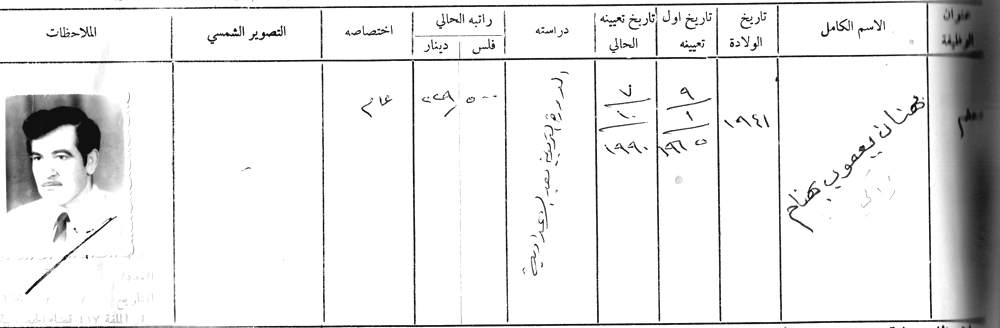 عنوان الوظيفة
الاسم الكامل
تاريخ الولادة
تاريخ اول تعيينه
تاريخ تعيينه الحالي
دراسته
راتبه الحالي
فلس
دينار
اختصاصه
التصوير الشمسي
الملاحظات
معلم
يعقوب بهنام
١٩٤١
٩
١
١٩٦٥
٧
١٠
١٩٩٠
الدورة التربوية بعد الاعدادية
٥٠٠
٢٢٩
عام
التاريخ